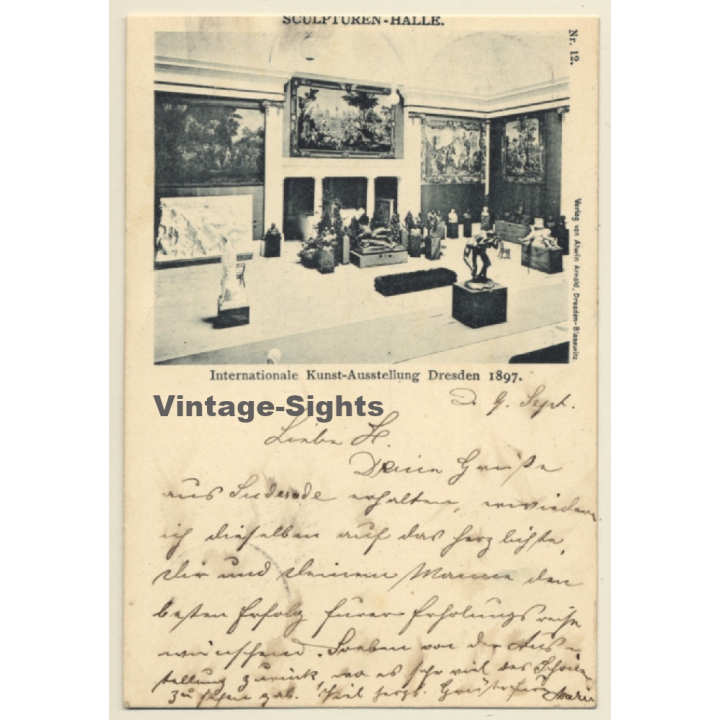 SCULPTUREN-HALLE.
Nr. 12.
Verlag von Alwin Arnold, Dresden-Blasewitz
Internationale Kunst-Ausstellung Dresden 1897.
Vintage-Sights
D. 9. Sept.
Liebe H.
Deine Grüße
aus Suderode erhalten, erwiedere
ich dieselben auf das herzlichste,
Dir und Deinem Manne den
besten Erfolg Eurer Erholungsreise
wünschend. Soeben von der Aus-
stellung zurück, wo es sehr viel des Schönen
zu sehen gab. herzl. Marie